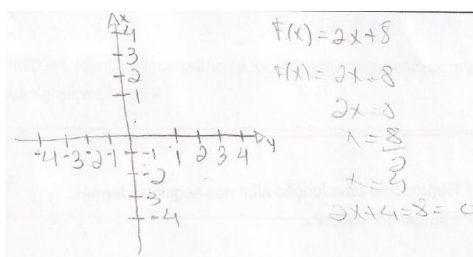 x
4
3
2
1
-4 -3 -2 -1 1 2 3 4 y
-1
-2
-3
-4
F(x) = 2x+8
F(x) = 2x=8
2x=8
x = 8
2
x =
2x+4=8=